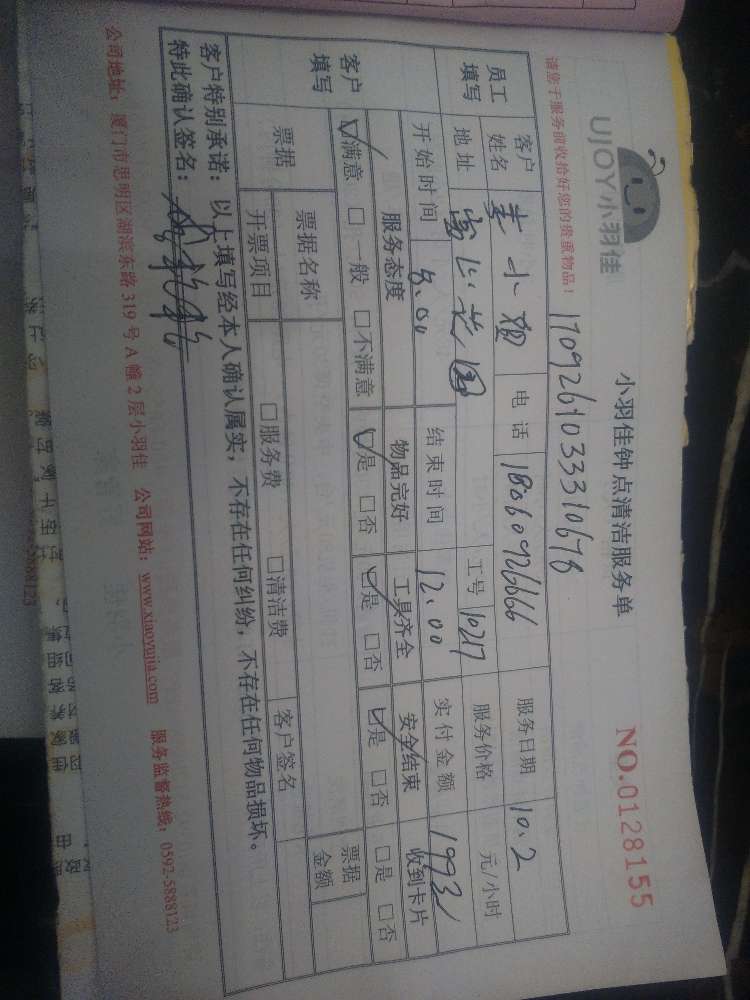 UJOY小羽佳
小羽佳钟点清洁服务单
NO.0128155
请您于服务前收拾好您的贵重物品！
1709261033310678
员工填写 客户姓名 姜小姐 电话 18060926666 服务日期 10.2
地址 富山花园 工号 10217 服务价格 元/小时
客户填写 开始时间 8.00 结束时间 12.00 实付金额 199元
服务态度 物品完好 工具齐全 安全结束 收到卡片
☑满意 □一般 □不满意 ☑是 □否 ☑是 □否 ☑是 □否 □是 □否
票据 票据名称 票据金额
开票项目 □服务费 □清洁费 客户签名
客户特别承诺：以上填写经本人确认属实，不存在任何纠纷，不存在任何物品损坏。
特此确认签名：
公司地址：厦门市思明区湖滨东路319号A幢2层小羽佳 公司网站：www.xiaoyujia.com 服务监督热线：0592-5888123